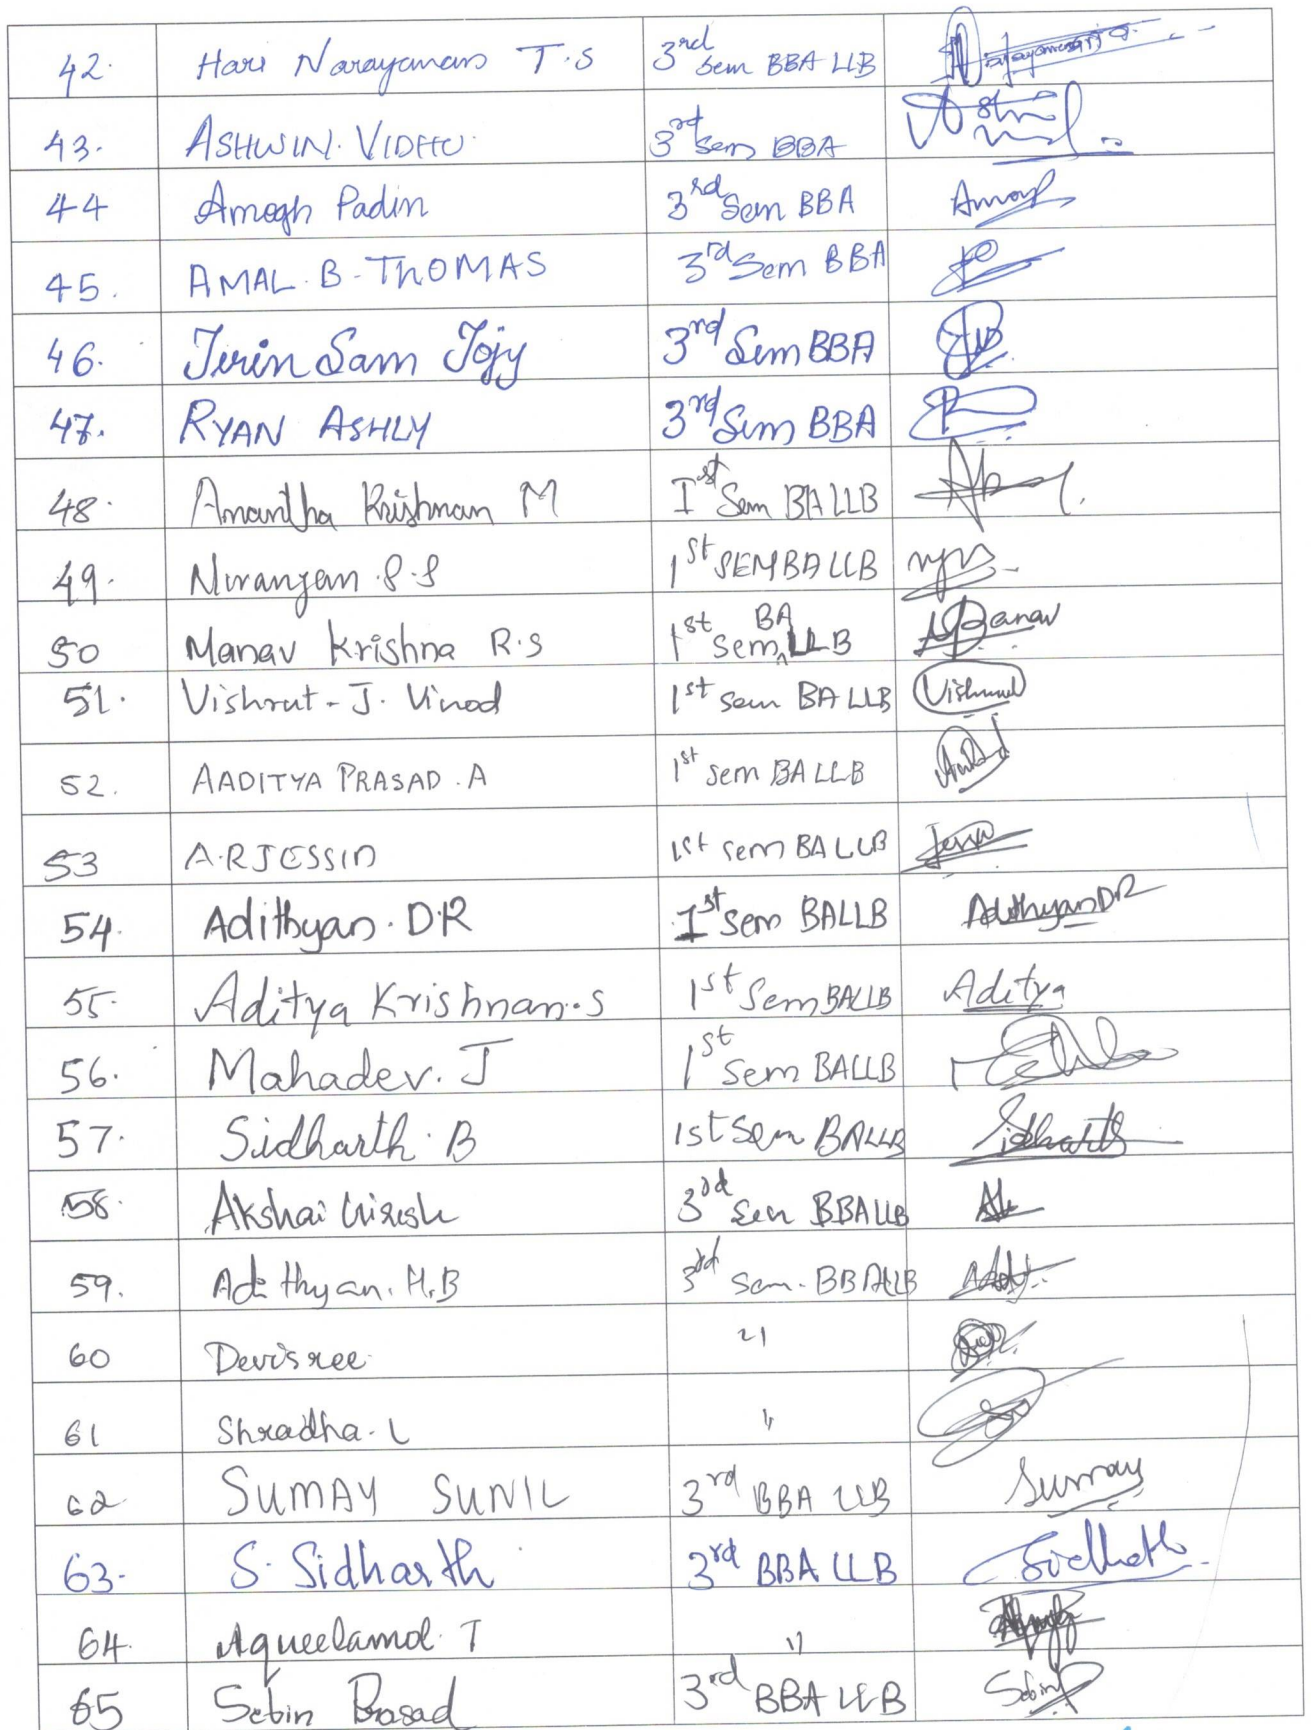 42. Hari Narayanan T.S 3rd Sem BBA LLB
43. ASHWIN. VIDHU 3rd Sem BBA
44 Amogh Padin 3rd Sem BBA Amogh
45. AMAL. B. THOMAS 3rd Sem BBA
46. Jerin Sam Jojy 3rd Sem BBA
47. RYAN ASHLY 3rd Sem BBA
48. Anantha Krishnan M Ist Sem BA LLB
49. Niranjan S.S 1st SEM BA LLB
50 Manav Krishna R.S 1st Sem BA LLB Manav
51. Vishrut. J. Vinod 1st Sem BA LLB Vishrut
52. AADITYA PRASAD. A 1st Sem BA LLB
53 A.R JESSIN 1st sem BA LLB
54. Adithyan. D.R Ist Sem BALLB Adithyan DR
55. Aditya Krishnan.S 1st Sem BALLB Aditya
56. Mahadev. J 1st Sem BALLB
57. Sidharth. B 1st Sem BALLB Sidharth
58. Akshai 3rd Sem BBA LLB
59. Adithyan. H.B 3rd Sem. BBA LLB
60 Devisree "
61 Shradha. L "
62 SUMAY SUNIL 3rd BBA LLB Sumay
63. S. Sidharth 3rd BBA LLB Sidharth
64. Aqueelamol. T "
65 Sebin Prasad 3rd BBA LLB Sebin